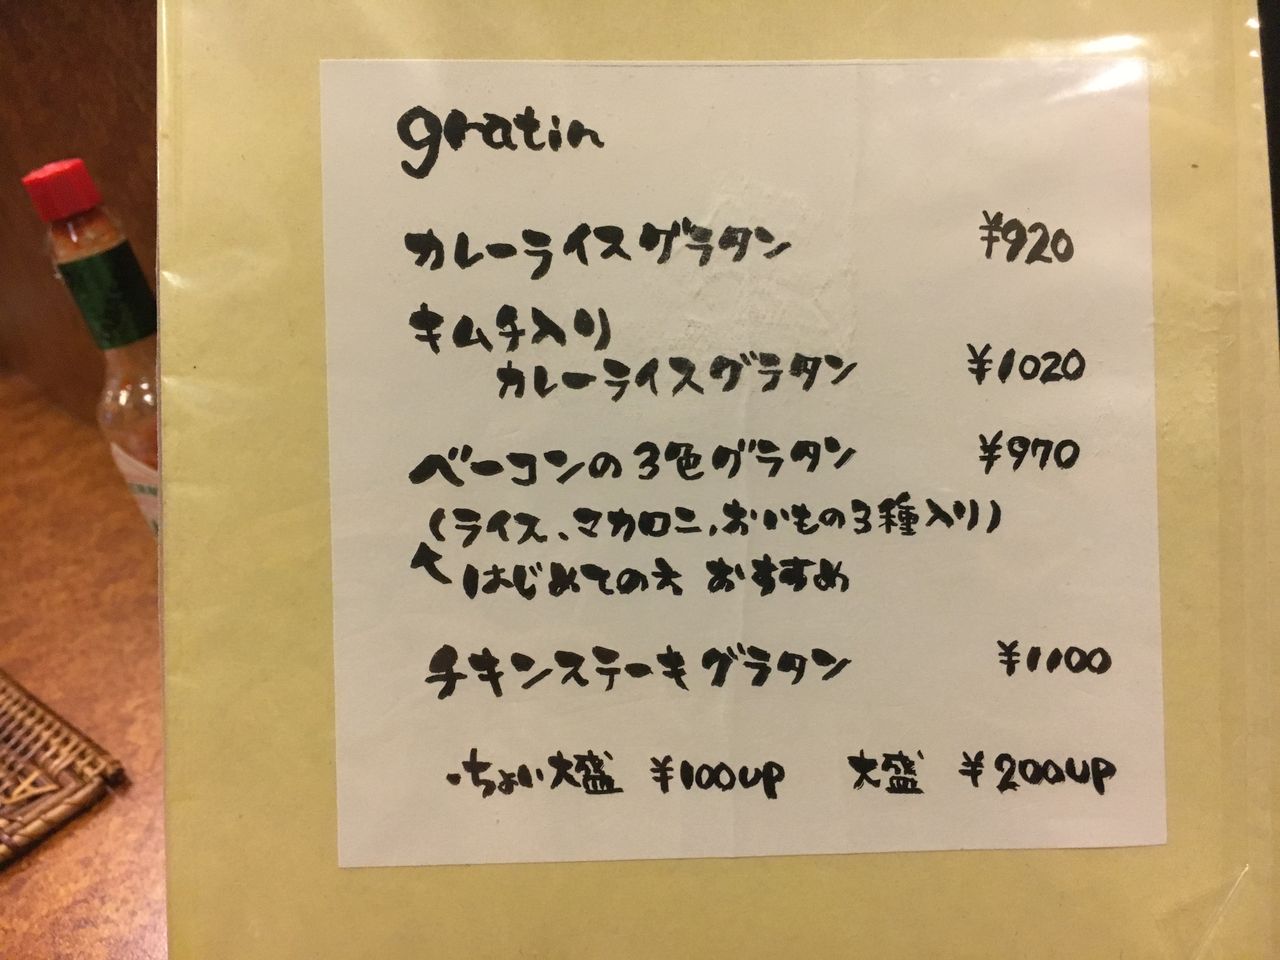 gratin
カレーライスグラタン ¥920
キムチ入り
カレーライスグラタン ¥1020
ベーコンの3色グラタン ¥970
(ライス、マカロニ、おいもの3種入り)
↑はじめての方 おすすめ
チキンステーキグラタン ¥1100
・ちょい大盛 ¥100UP 大盛 ¥200UP